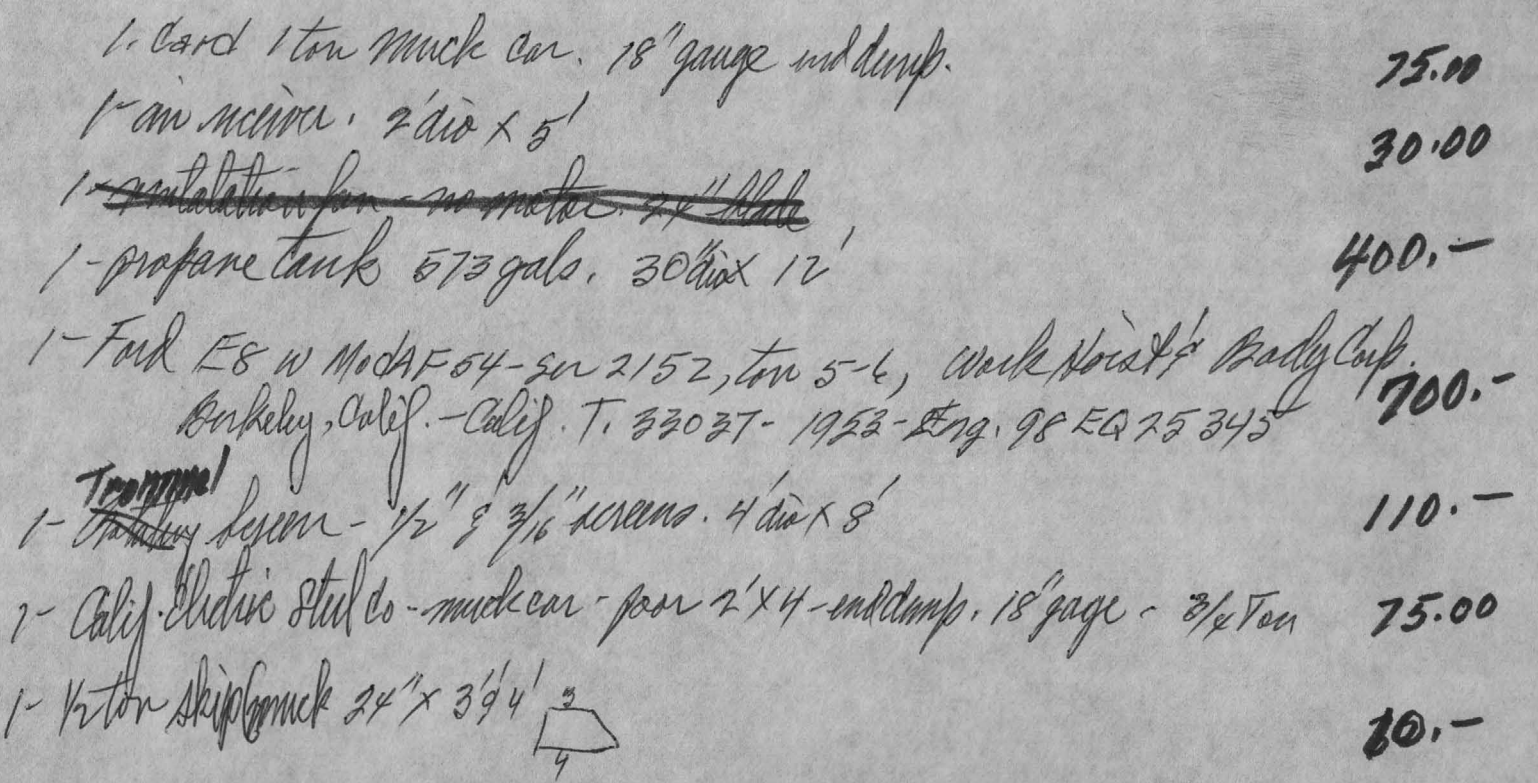 1. Card 1 ton muck car. 18" gauge end dump. 75.00
1- air receiver. 2' dia x 5' 30.00
1- ventalation fan - no motor. 24" blade
1- propane tank 573 gals. 30" dia x 12' 400.-
1- Ford E8 W Mod AF54 - Ser 2152, ton 5-6, Work Hoist & Body Corp. 700.-
Berkeley, Calif. - Calif. T. 33037 - 1953 - Eng. 98 EQ 25345
Trommel
1- screen - 1/2" & 3/16" screens. 4' dia x 8' 110.-
1- Calif. Electric Steel Co - muck car - poor 2' x 4 - end dump. 18" gage - 3/4 Ton 75.00
1- 1/2 ton skip muck 24" x 3' & 4' 3 4 10.-